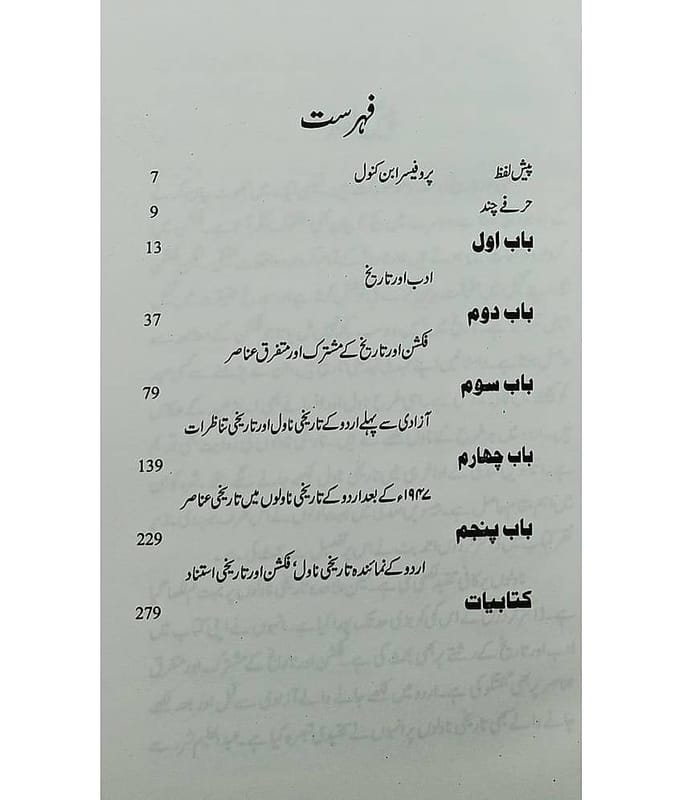 فہرست
پیش لفظ پروفیسر ابن کنول 7
حرفے چند 9
باب اول 13
ادب اور تاریخ
باب دوم 37
فکشن اور تاریخ کے مشترک اور متفرق عناصر
باب سوم 79
آزادی سے پہلے اردو کے تاریخی ناول اور تاریخی تناظرات
باب چهارم 139
۱۹۴۷ء کے بعد اردو کے تاریخی ناولوں میں تاریخی عناصر
باب پنجم 229
اردو کے نمائندہ تاریخی ناول، فکشن اور تاریخی استناد
کتابیات 279